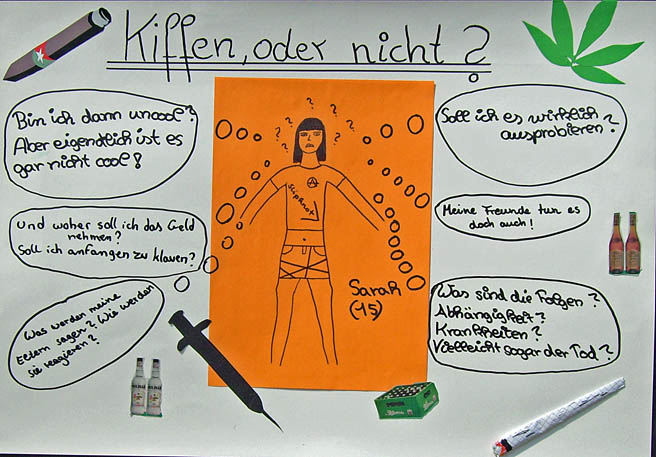 Kiffen, oder nicht?
Bin ich dann uncool?
Aber eigentlich ist es
gar nicht cool!
Soll ich es wirklich
ausprobieren?
und woher soll ich das Geld
nehmen?
Soll ich anfangen zu klauen?
Meine Freunde tun es
doch auch!
Was werden meine
Eltern sagen? Wie werden
sie reagieren?
Was sind die Folgen?
Abhängigkeit?
Krankheiten?
Vielleicht sogar der Tod?
? ? ? ? ? ? ?
Slipknot
Sarah
(15)